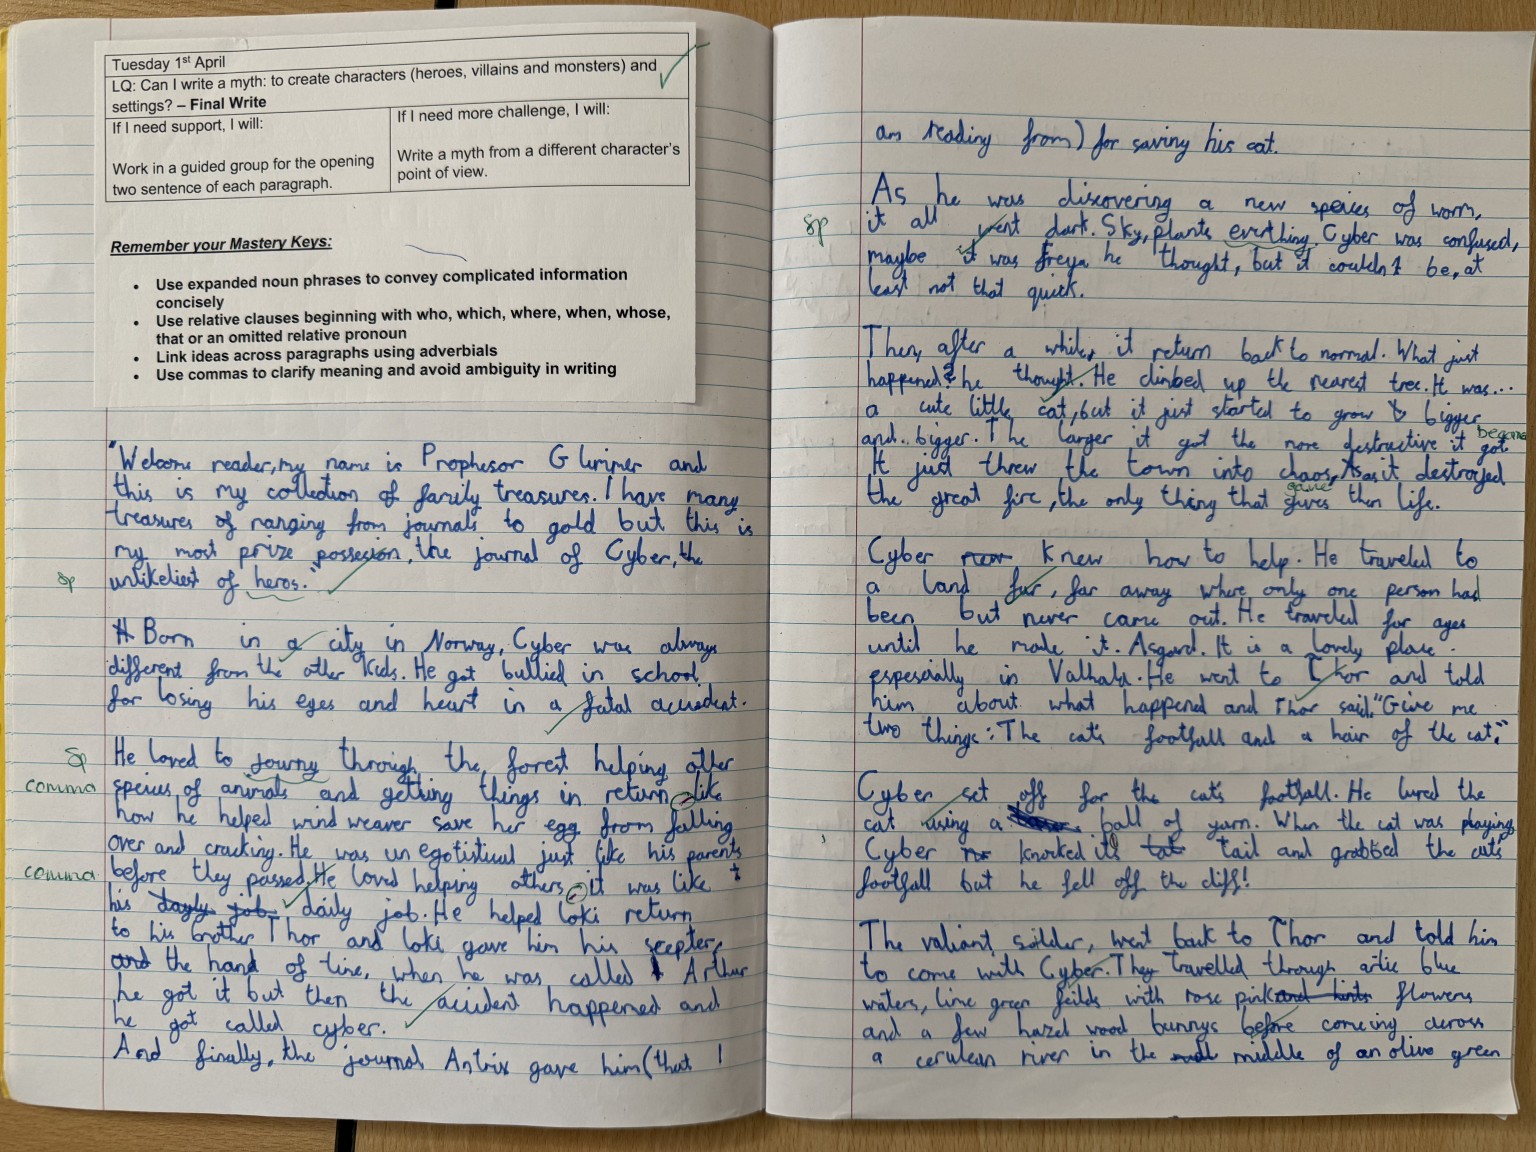 Tuesday 1st April
LQ: Can I write a myth: to create characters (heroes, villains and monsters) and
settings? – Final Write
If I need support, I will:
Work in a guided group for the opening
two sentence of each paragraph.
If I need more challenge, I will:
Write a myth from a different character's
point of view.
Remember your Mastery Keys:
• Use expanded noun phrases to convey complicated information
concisely
• Use relative clauses beginning with who, which, where, when, whose,
that or an omitted relative pronoun
• Link ideas across paragraphs using adverbials
• Use commas to clarify meaning and avoid ambiguity in writing
"Welcome reader, my name is Prophesor Glimmer and
this is my collection of family treasures. I have many
treasures of ranging from journals to gold but this is
my most prize possesion, the journal of Cyber, the
sp unlikeliest of heros."
Born in a city in Norway, Cyber was always
different from the other kids. He got bullied in school
for losing his eyes and heart in a fatal accident.
Sp He loved to journy through the forest helping other
comma speices of animals and getting things in return like
how he helped wind weaver save her egg from falling
over and cracking. He was un egotistical just like his parents
comma before they passed. He loved helping others, it was like
his dayly job. daily job. He helped Loki return
to his brother Thor and Loki gave him his scepter,
and the hand of time, when he was called Arthur
he got it but then the accident happened and
he got called cyber.
And finally, the journal Antrix gave him (that I
am reading from) for saving his cat.
As he was discovering a new speices of worm,
sp it all went dark. Sky, plants everthing. Cyber was confused,
maybe it was Freya he thought, but it couldn't be, at
least not that quick.
Then, after a while, it return back to normal. What just
happened? he thought. He climbed up the nearest tree. It was...
a cute little cat, but it just started to grow bigger
and.. bigger. The larger it got the more destructive it got
became
It just threw the town into chaos, As as it destroyed
the great fire, the only thing that gives them life.
gave
Cyber knew how to help. He traveled to
a land far, far away where only one person had
been but never came out. He traveled for ages
until he made it. Asgard. It is a lovely place
espesecially in Valhala. He went to Thor and told
him about what happened and Thor said, "Give me
two things: The cat's footfall and a hair of the cat."
Cyber set off for the cat's footfall. He lured the
cat using a ball of yarn. When the cat was playing,
Cyber knocked its tail and grabbed the cat's
footfall but he fell off the cliff!
The valiant soilder, went back to Thor and told him
to come with Cyber. They travelled through artic blue
waters, lime green feilds with rose pink and hints flowers
and a few hazel wood bunnys before comeing across
a cerulean river in the middle of an olive green